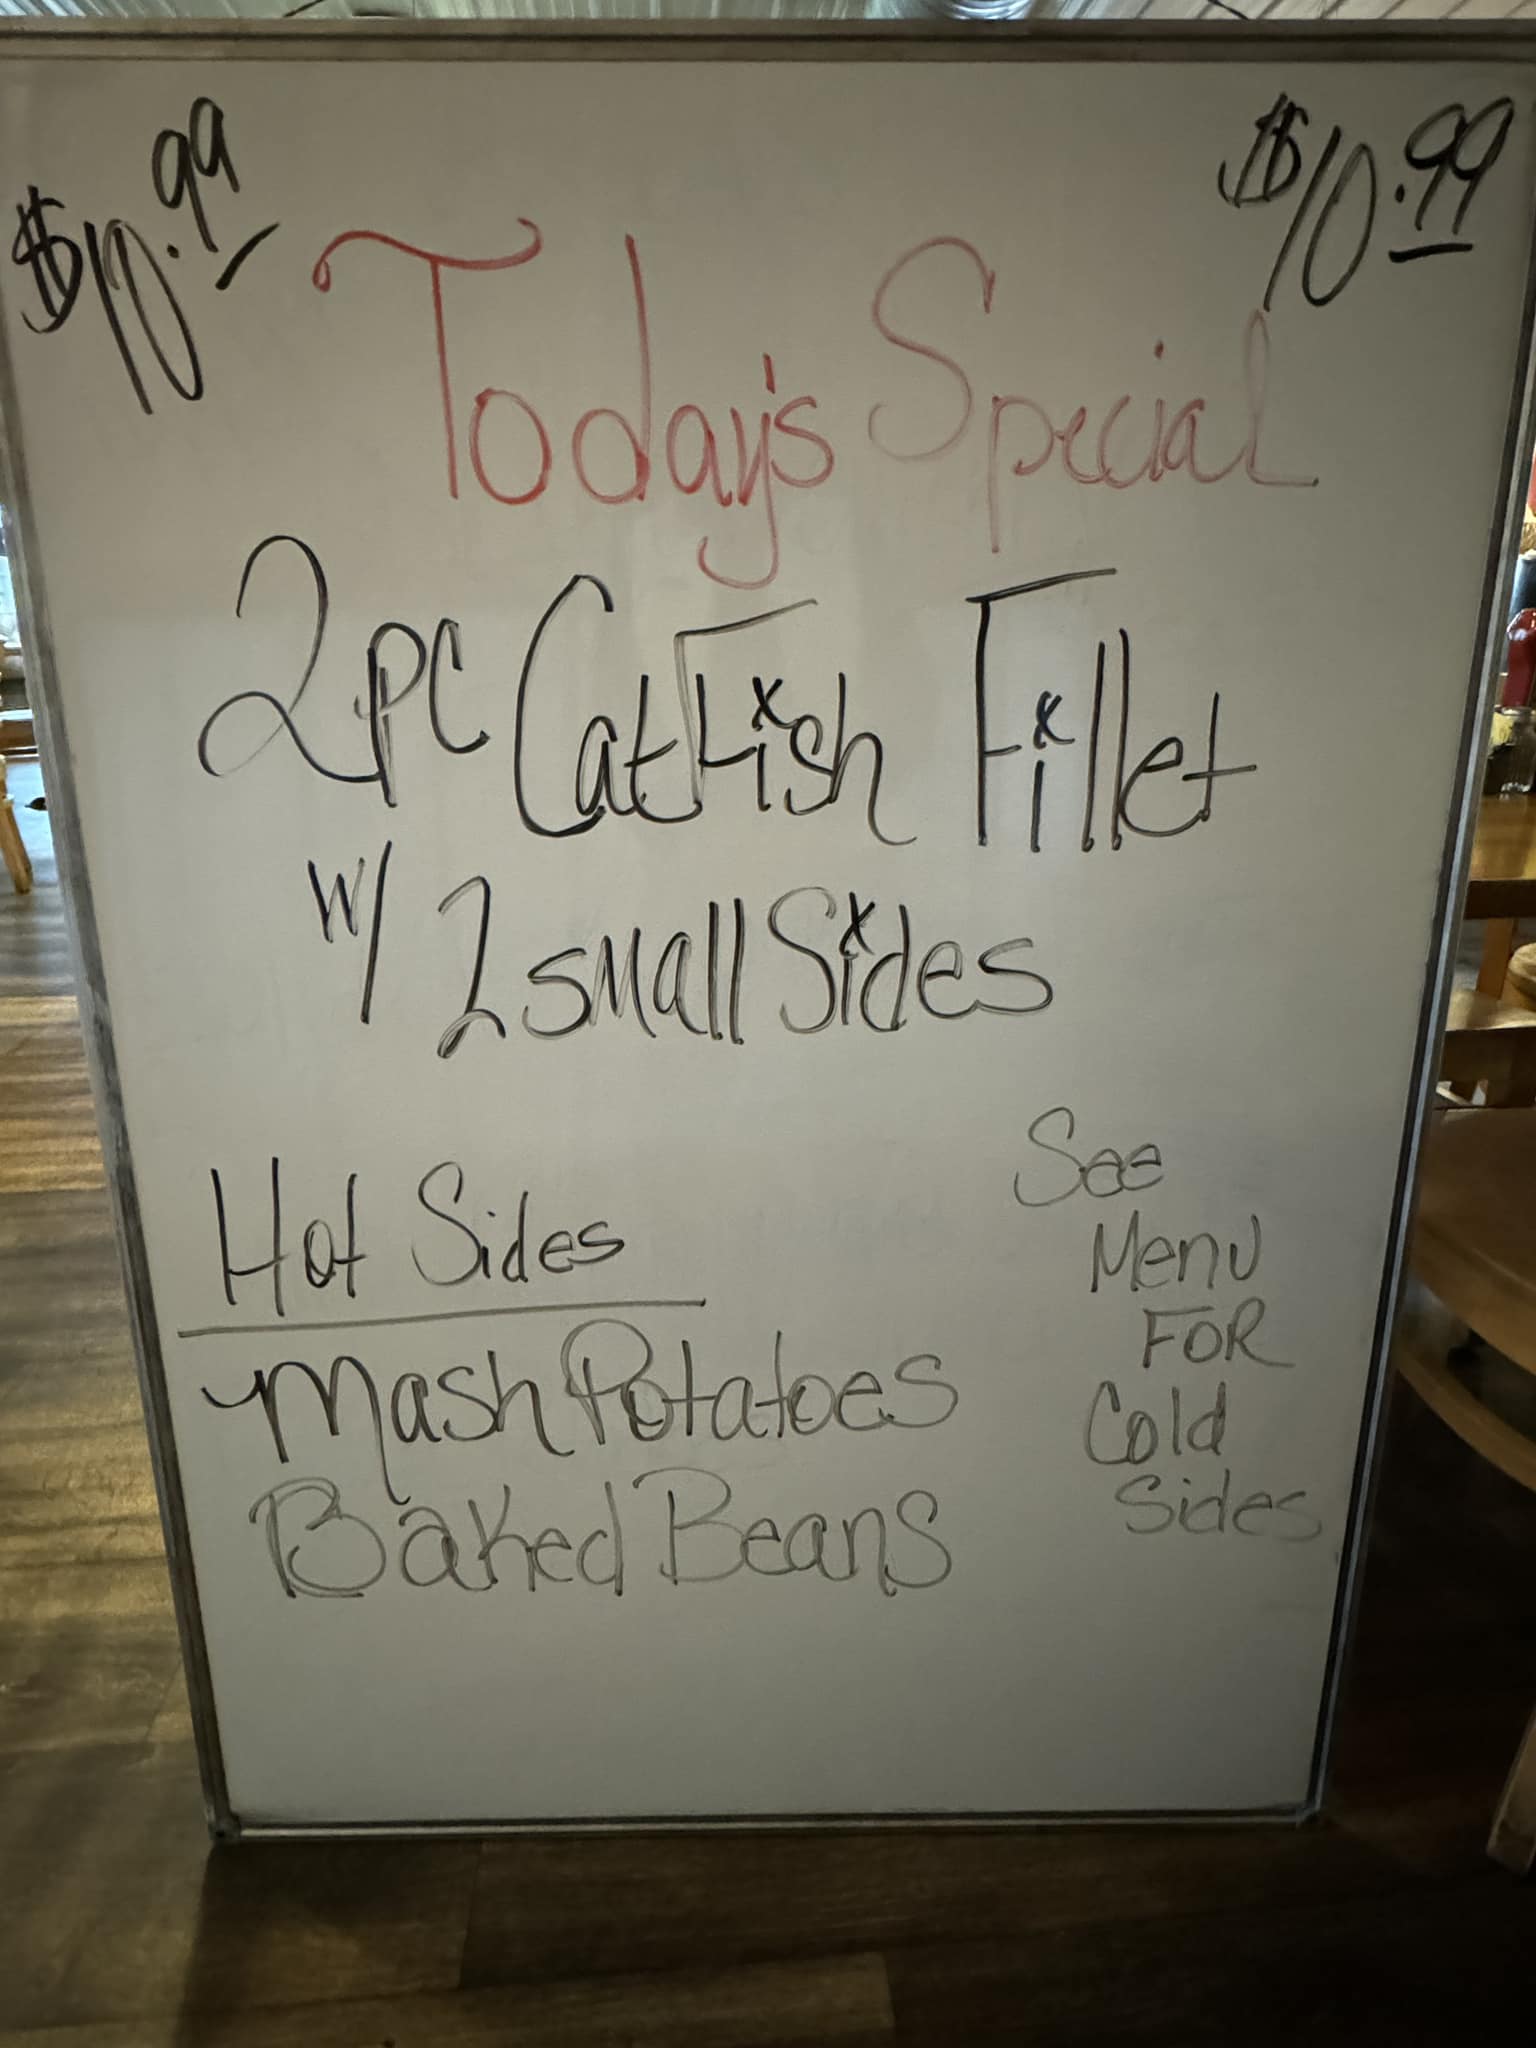 $10.99
$10.99
Today's Special
2pc CatFish Fillet
w/ 2 small Sides
Hot Sides
Mash Potatoes
Baked Beans
See
Menu
FOR
Cold
Sides